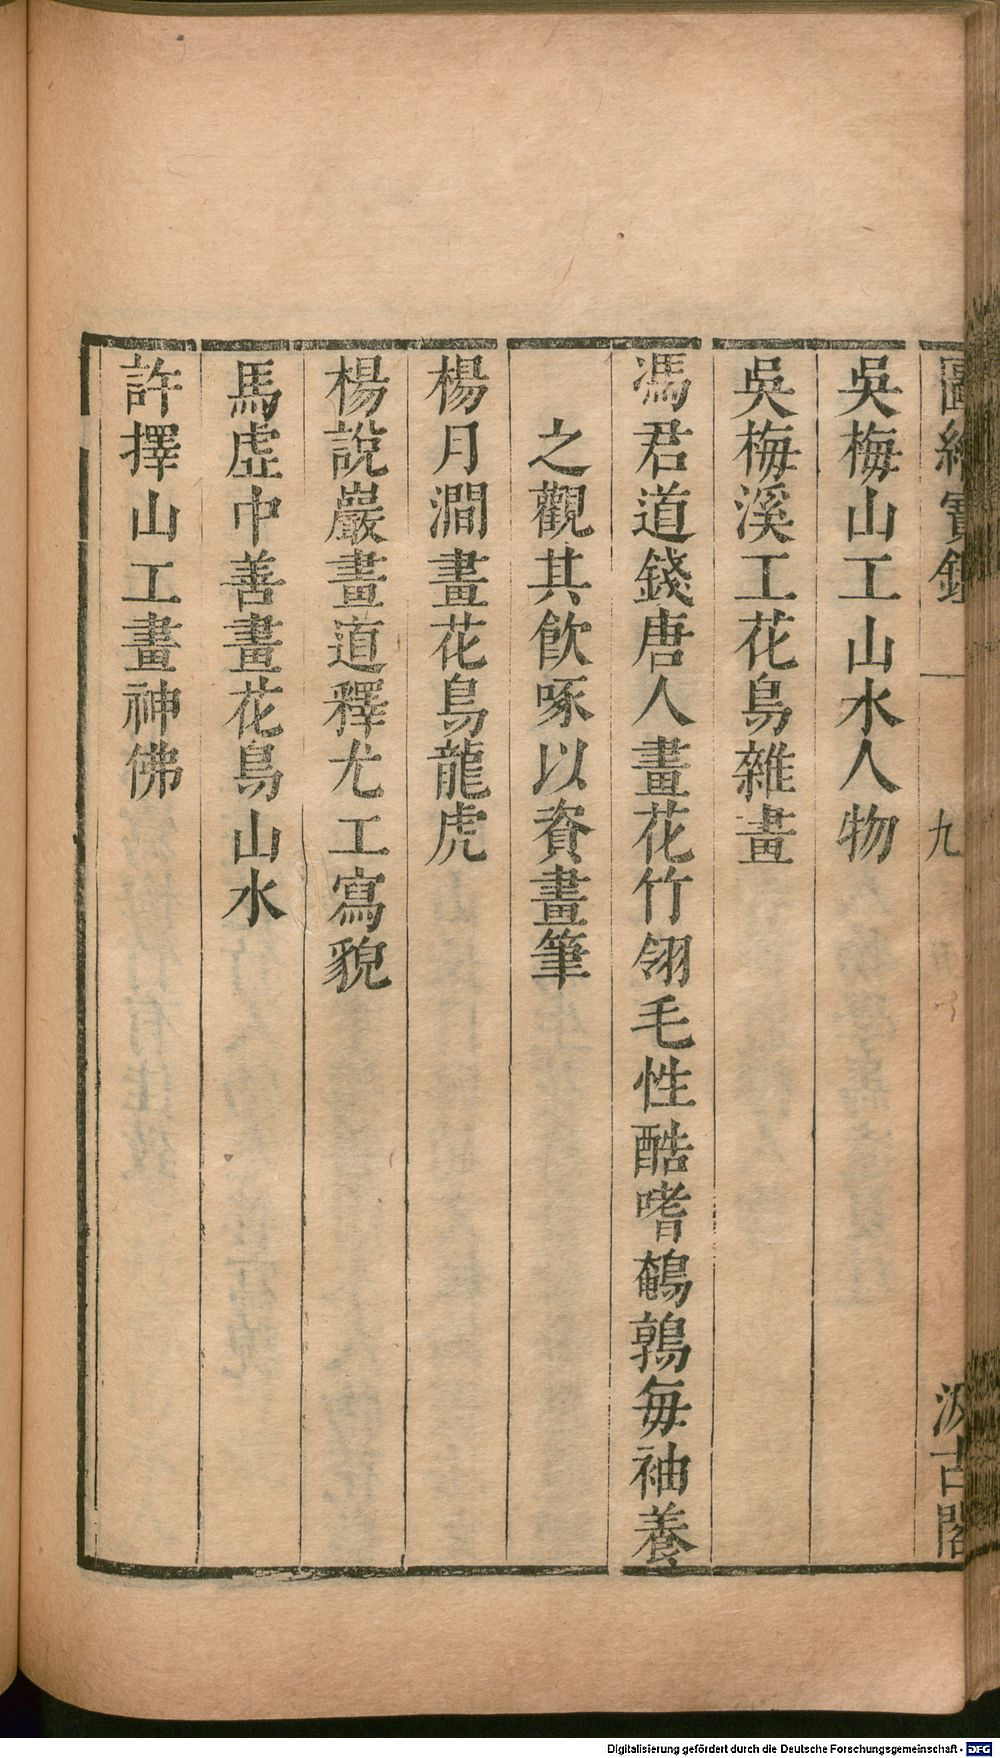 圖繪寶鑑 九 汲古閣
吳梅山工山水人物
吳梅溪工花鳥雜畫
馮君道錢唐人畫花竹翎毛性酷嗜鵪鶉每袖養
之觀其飲啄以資畫筆
楊月澗畫花鳥龍虎
楊說巖畫道釋尤工寫貌
馬虛中善畫花鳥山水
許擇山工畫神佛
Digitalisierung gefördert durch die Deutsche Forschungsgemeinschaft - DFG